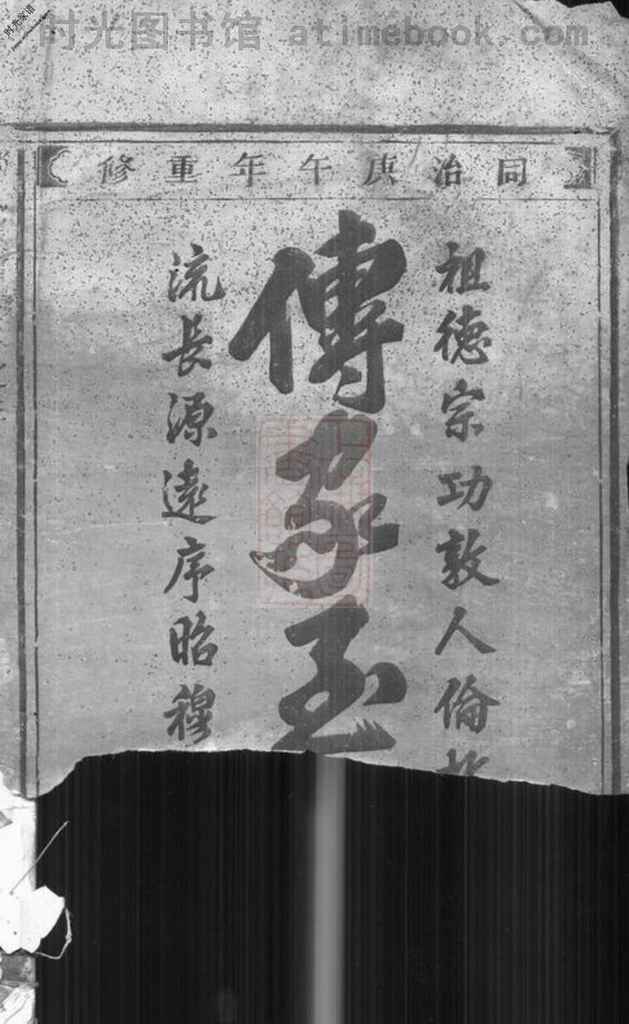 时光图书馆 atimebook.com
同治庚午年重修
祖德宗功敦人倫
傳家玉
流長源遠序昭穆